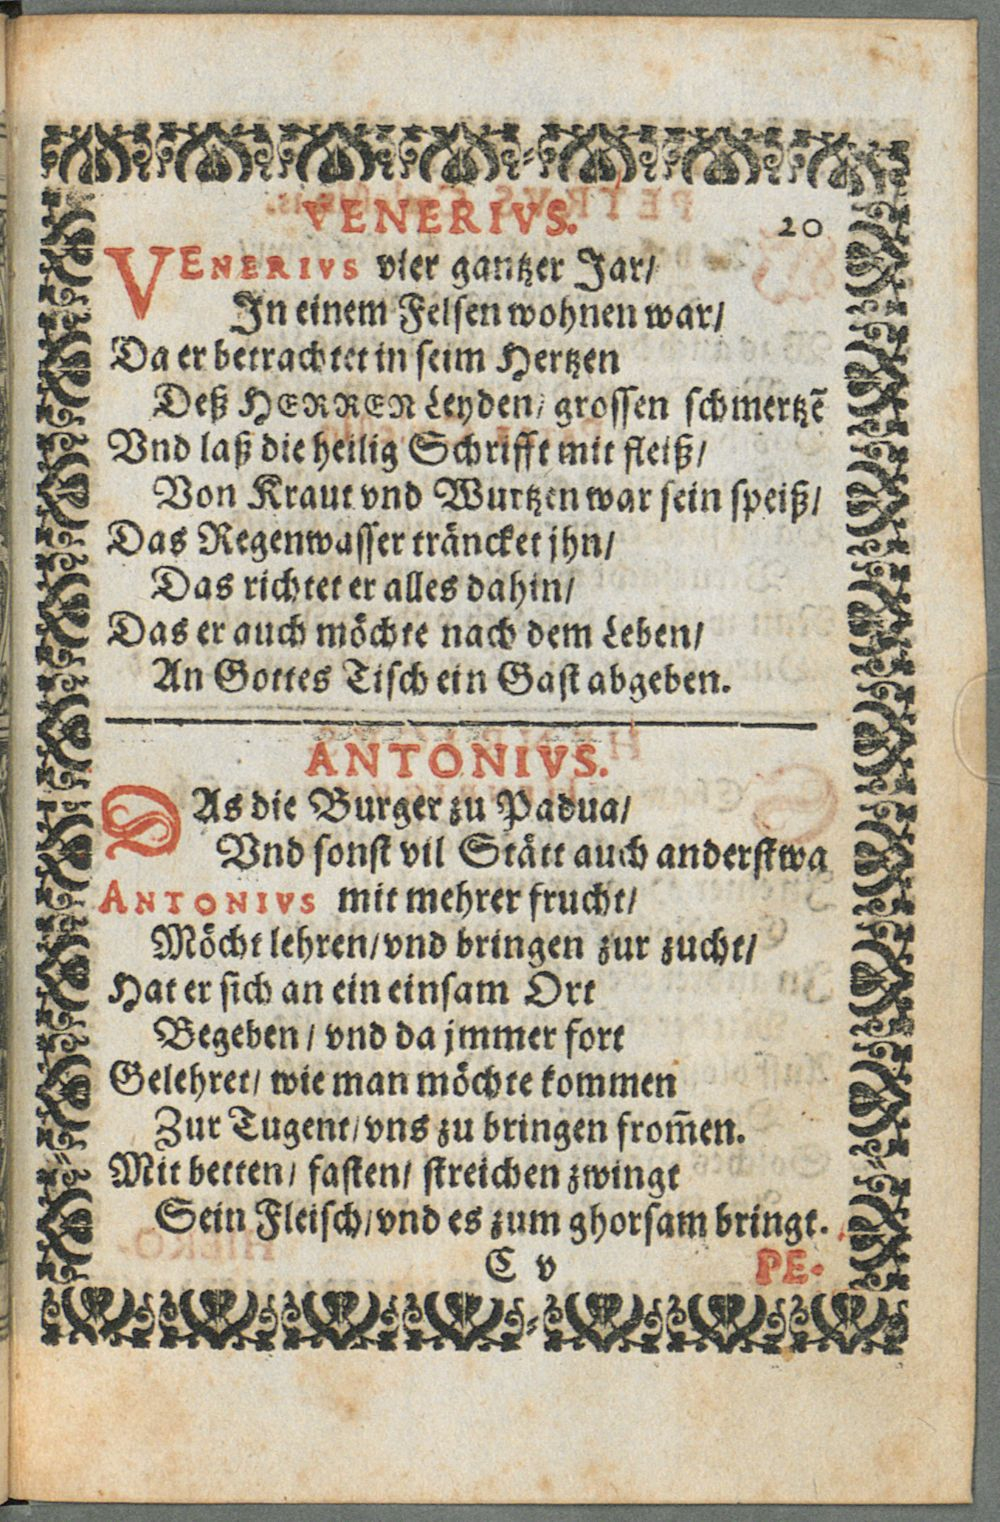 VENERIVS.
20
VENERIVS vier gantzer Jar/
In einem Felsen wohnen war/
Da er betrachtet in seim Hertzen
Deß HERREN Leyden/ grossen schmertzẽ
Vnd laß die heilig Schrifft mit fleiß/
Von Kraut vnd Wurtzen war sein speiß/
Das Regenwasser träncket jhn/
Das richtet er alles dahin/
Das er auch möchte nach dem Leben/
An Gottes Tisch ein Gast abgeben.
ANTONIVS.
DAs die Burger zu Padua/
Vnd sonst vil Stätt auch anderstwa
ANTONIVS mit mehrer frucht/
Möcht lehren/ vnd bringen zur zucht/
Hat er sich an ein einsam Ort
Begeben/ vnd da jmmer fort
Gelehret/ wie man möchte kommen
Zur Tugent/ vns zu bringen from̃en.
Mit betten/ fasten/ streichen zwingt
Sein Fleisch/ vnd es zum ghorsam bringt.
C v
PE-